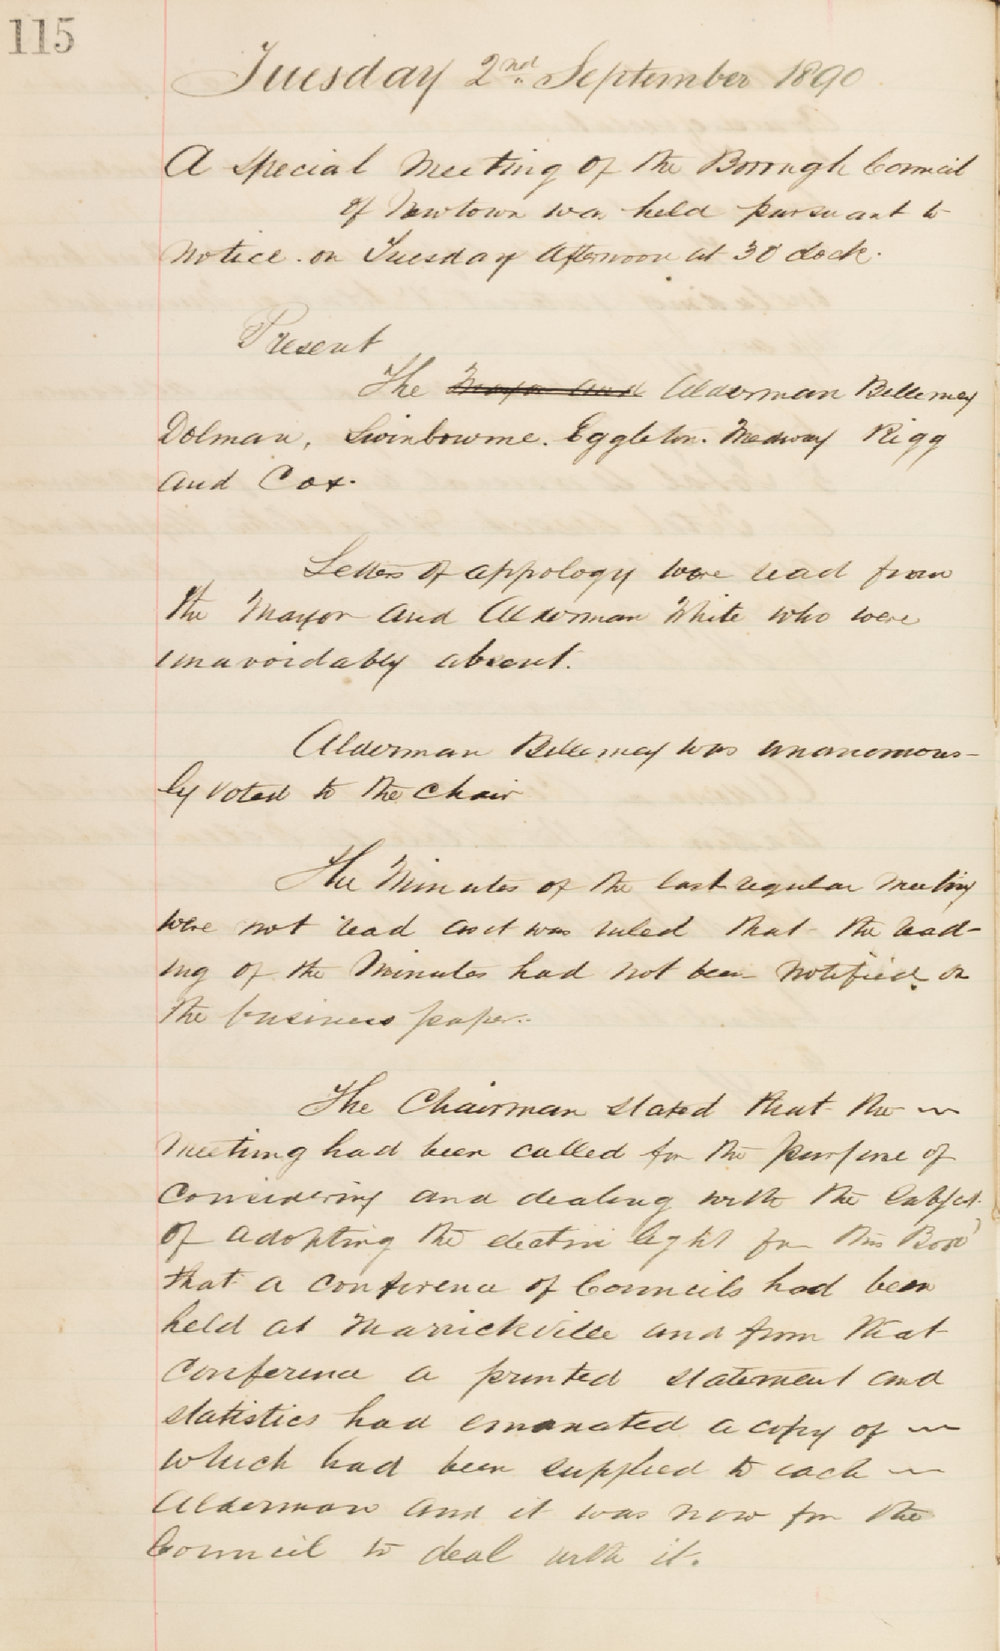 115
Tuesday 2nd September 1890
A special Meeting of the Borough Council
of Newtown was held pursuant to
notice on Tuesday afternoon at 3 O'clock.
Present
The Mayor and Alderman Bellemey
Dolman, Swinbourne. Eggleton. Medway Rigg
and Cox.
Letters of appology were read from
the Mayor and Alderman White who were
unavoidably absent.
Alderman Bellemey was unanomous-
ly voted to the chair
The Minutes of the last regular meeting
were not read as it was ruled that the read-
ing of the Minutes had not been notified on
the business paper.
The Chairman stated that the
meeting had been called for the purpose of
considering and dealing with the subject
of adopting the electric light for this Boro'
that a conference of Councils had been
held at Marrickville and from that
conference a printed statement and
statistics had emanated a copy of
which had been supplied to each
Alderman and it was now for the
Council to deal with it.